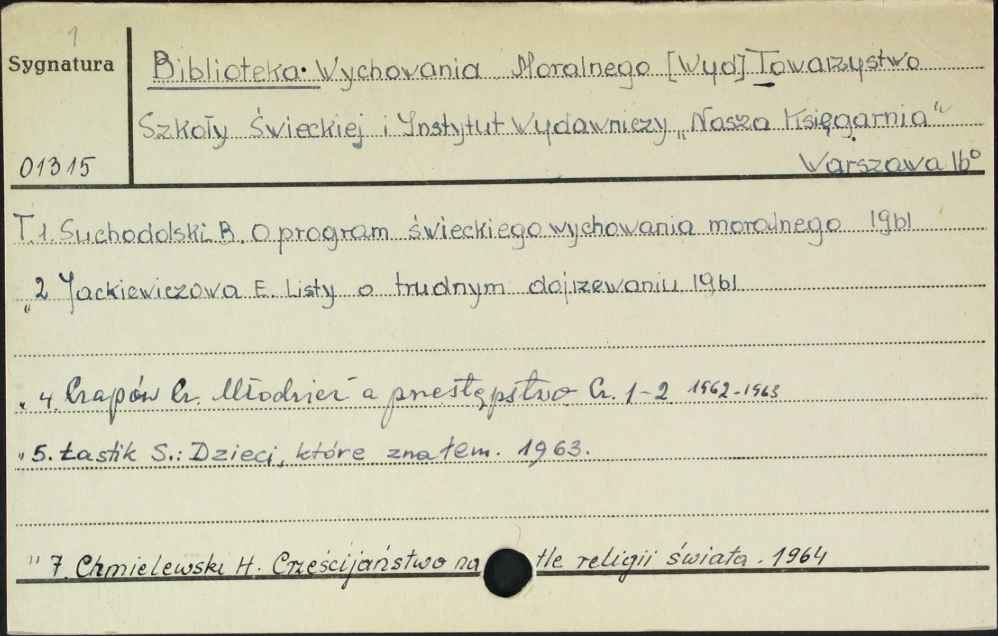 1
Sygnatura
Biblioteka Wychowania Moralnego [Wyd] Towarzystwo
Szkoły Świeckiej i Instytut Wydawniczy „Nasza Księgarnia"
01315
Warszawa 16°
T. 1. Suchodolski B. O program świeckiego wychowania moralnego 1961
" 2 Jackiewiczowa E. Listy o trudnym dojrzewaniu 1961
" 4. Czapów Cz. Młodzież a przestępstwo Cz. 1-2 1962-1963
" 5. Łastik S.: Dzieci, które znałem. 1963.
" 7. Chmielewski H. Cześcijaństwo na tle religii świata. 1964